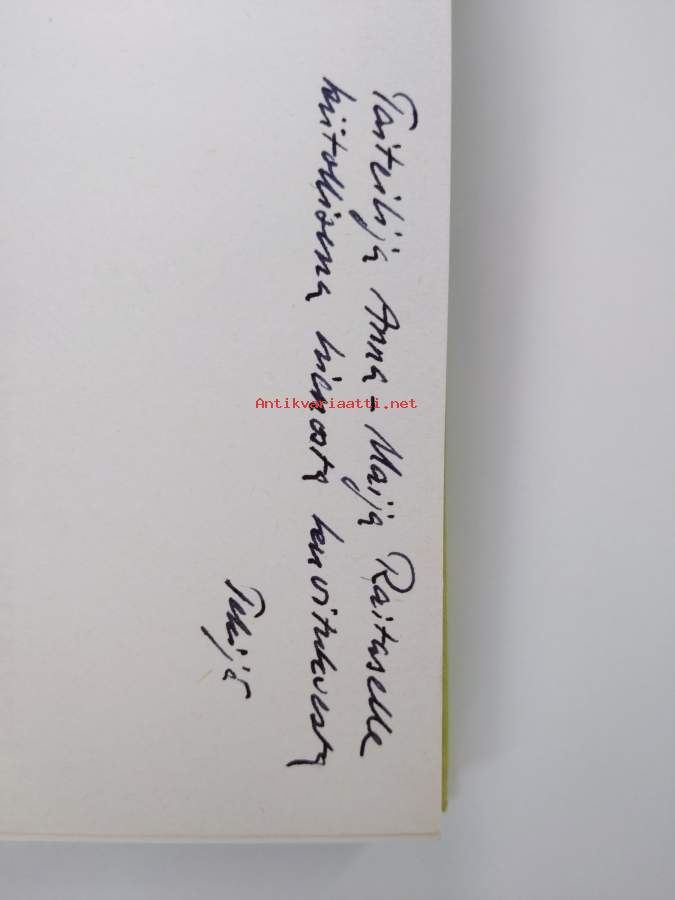 Taiteilija Anna-Maija Raituselle
kiitollisena hienosta kuvituksesta
Tekijä
Antikvariaatti.net